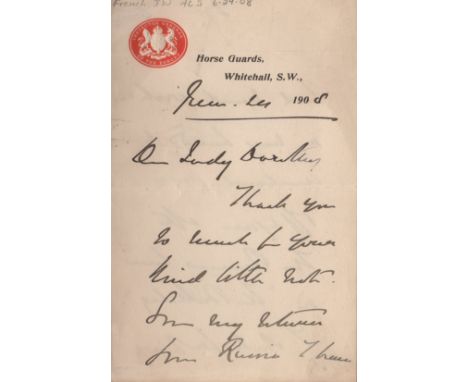 French JW ALS 6-24-08
Horse Guards,
Whitehall, S.W.,
June 24 1908
Lady Dorothy
Thank you
so much for your
kind little note.
my return
from Russia I have